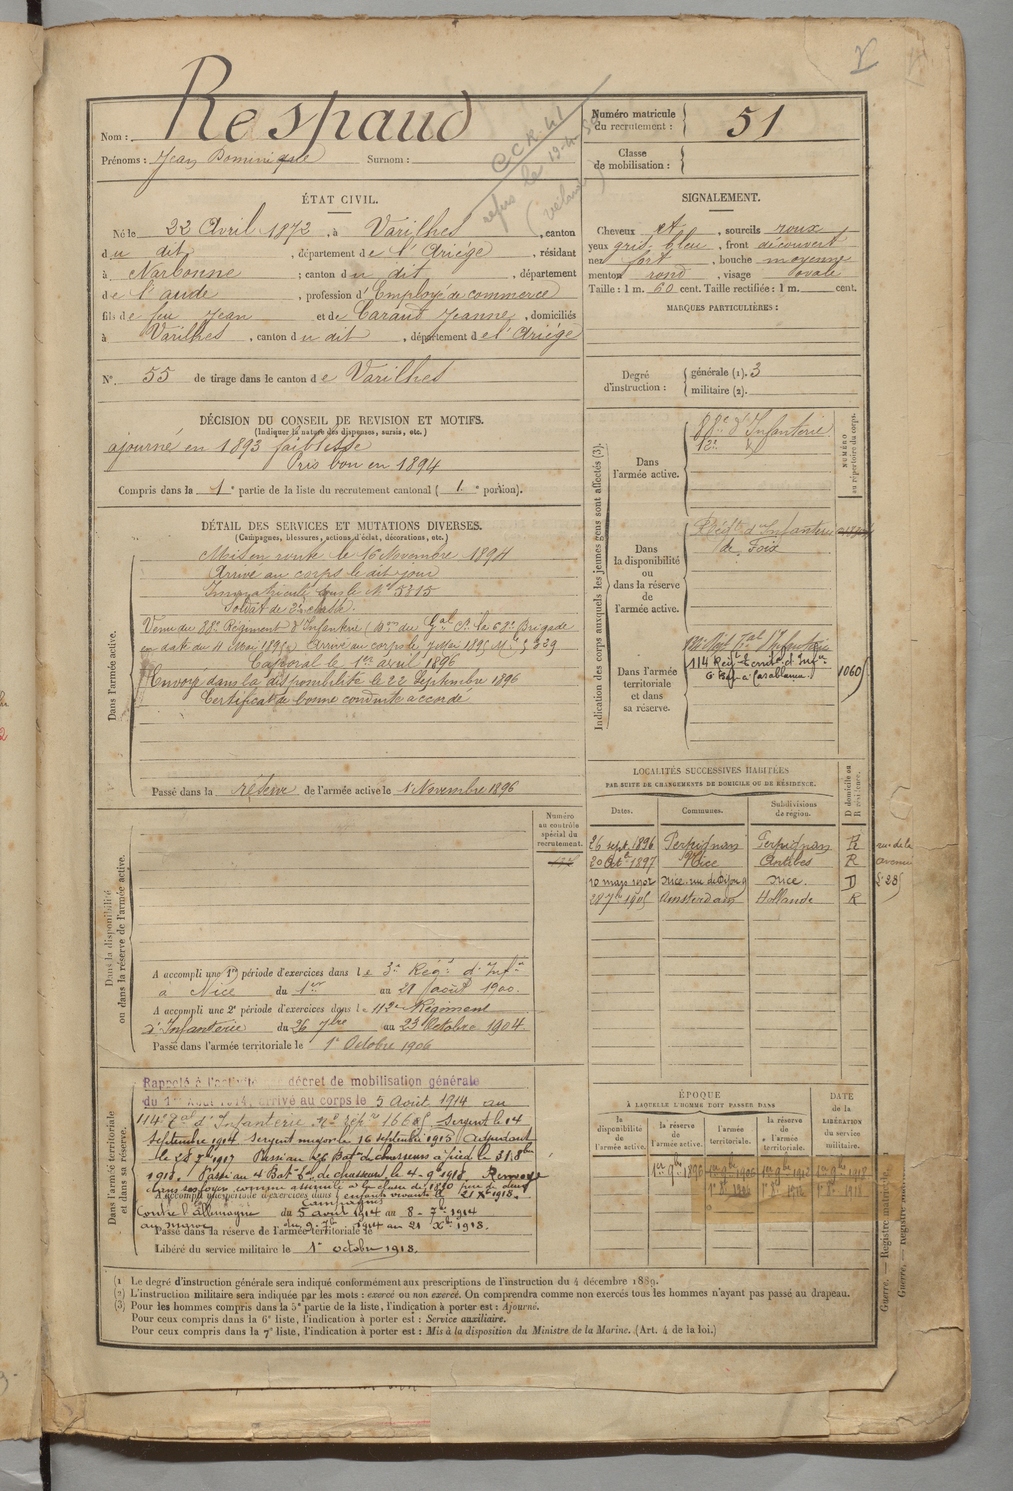 Nom : Respaud
Prénoms : Jean Dominique Surnom :
C C R 41
refus le 19-4-
Numéro matricule
du recrutement : 51
Classe
de mobilisation :
ÉTAT CIVIL.
Né le 22 Avril 1872, à Varilhes, canton
du dit, département de l'Ariége, résidant
à Narbonne ; canton du dit, département
de l'aude, profession d'Employé de commerce
fils de feu Jean et de Caraut Jeanne, domiciliés
à Varilhes, canton du dit, département de l'Ariége
N° 55 de tirage dans le canton de Varilhes
SIGNALEMENT.
Cheveux et, sourcils roux
yeux gris-bleu, front découvert
nez fort, bouche moyenne
menton rond, visage ovale
Taille : 1 m. 60 cent. Taille rectifiée : 1 m. cent.
MARQUES PARTICULIÈRES :
Degré
d'instruction :
générale (1). 3
militaire (2).
DÉCISION DU CONSEIL DE REVISION ET MOTIFS.
(Indiquer la nature des dispenses, sursis, etc.)
ajourné en 1893 faiblesse
Pris bon en 1894
Compris dans la 1e partie de la liste du recrutement cantonal (1.e portion).
DÉTAIL DES SERVICES ET MUTATIONS DIVERSES.
(Campagnes, blessures, actions d'éclat, décorations, etc.)
Dans l'armée active.
Mis en route le 16 Novembre 1894
Arrivé au corps le dit jour
Immatriculé sous le N° 5315
Soldat de 2e classe.
Venu du 88e Régiment d'Infanterie
Caporal le 1er avril 1896
Envoyé dans la disponibilité le 22 Septembre 1896
Certificat de bonne conduite accordé
Passé dans la réserve de l'armée active le 1 Novembre 1896
Indication des corps auxquels les jeunes gens sont affectés (3).
NUMÉRO
au répertoire du corps.
Dans
l'armée active.
88e d'Infanterie
12e
Dans
la disponibilité
ou
dans la réserve
de
l'armée active.
Régt d'Infanterie
de Foix
Dans l'armée
territoriale
et dans
sa réserve.
114 Regt Territ. d'Infie
à Casablanca.
1060
LOCALITÉS SUCCESSIVES HABITÉES
PAR SUITE DE CHANGEMENTS DE DOMICILE OU DE RÉSIDENCE.
Dates. Communes. Subdivisions
de région.
D domicile ou
R résidence.
26 sept. 1896 Perpignan Perpignan R
20 1897 Nice Antibes R
10 mars 1902 Nice rue de Dijon 9 Nice. D
28 7bre 1905 Amsterdam Hollande R
Dans la disponibilité
ou dans la réserve de l'armée active.
Numéro
au contrôle
spécial du
recrutement.
A accompli une 1re période d'exercices dans le 3e Régt d'Infie
à Nice du 1er au 21 août 1900.
A accompli une 2e période d'exercices dans le 112e Régiment
d'Infanterie du 26 7bre au 23 Octobre 1904.
Passé dans l'armée territoriale le 1er Octobre 1906
Dans l'armée territoriale
et dans sa réserve.
Rappelé à l'activité décret de mobilisation générale
du 1er Août 1914. Arrivé au corps le 5 Août 1914 au
114e Tal d'Infanterie Sergent le 14
Septembre 1914 Sergent major le 16 septembre 1915 Adjudant
le 28 1917 Passé au 26 Batn de chasseurs à pied le 31 8bre
1918. Passé au 4 Batn de chasseurs le 4-9bre 1918
dans ses foyers comme assimilé à la classe de 1890 père de deux
enfants vivants le 21 Xbre 1918.
A accompli une période d'exercices dans l
Campagnes
Contre l'Allemagne du 5 août 1914 au 8-7bre 1914
au Maroc du 9-7bre 1914 au 21 Xbre 1918.
Passé dans la réserve de l'armée territoriale le
Libéré du service militaire le 1er octobre 1918.
ÉPOQUE
À LAQUELLE L'HOMME DOIT PASSER DANS
DATE
de la
LIBÉRATION
du service
militaire.
la
disponibilité
de
l'armée active.
la réserve
de
l'armée active.
l'armée
territoriale.
la réserve
de
l'armée
territoriale.
1er 9bre 1896 1er 9bre 1906 1er 9bre 1912 1er 9bre 1918
1er 8bre 1906 1er 8bre 1912 1er 8bre 1918
Guerre. — Registre matricule.
(1) Le degré d'instruction générale sera indiqué conformément aux prescriptions de l'instruction du 4 décembre 1889.
(2) L'instruction militaire sera indiquée par les mots : exercé ou non exercé. On comprendra comme non exercés tous les hommes n'ayant pas passé au drapeau.
(3) Pour les hommes compris dans la 5e partie de la liste, l'indication à porter est : Ajourné.
Pour ceux compris dans la 6e liste, l'indication à porter est : Service auxiliaire.
Pour ceux compris dans la 7e liste, l'indication à porter est : Mis à la disposition du Ministre de la Marine. (Art. 4 de la loi.)